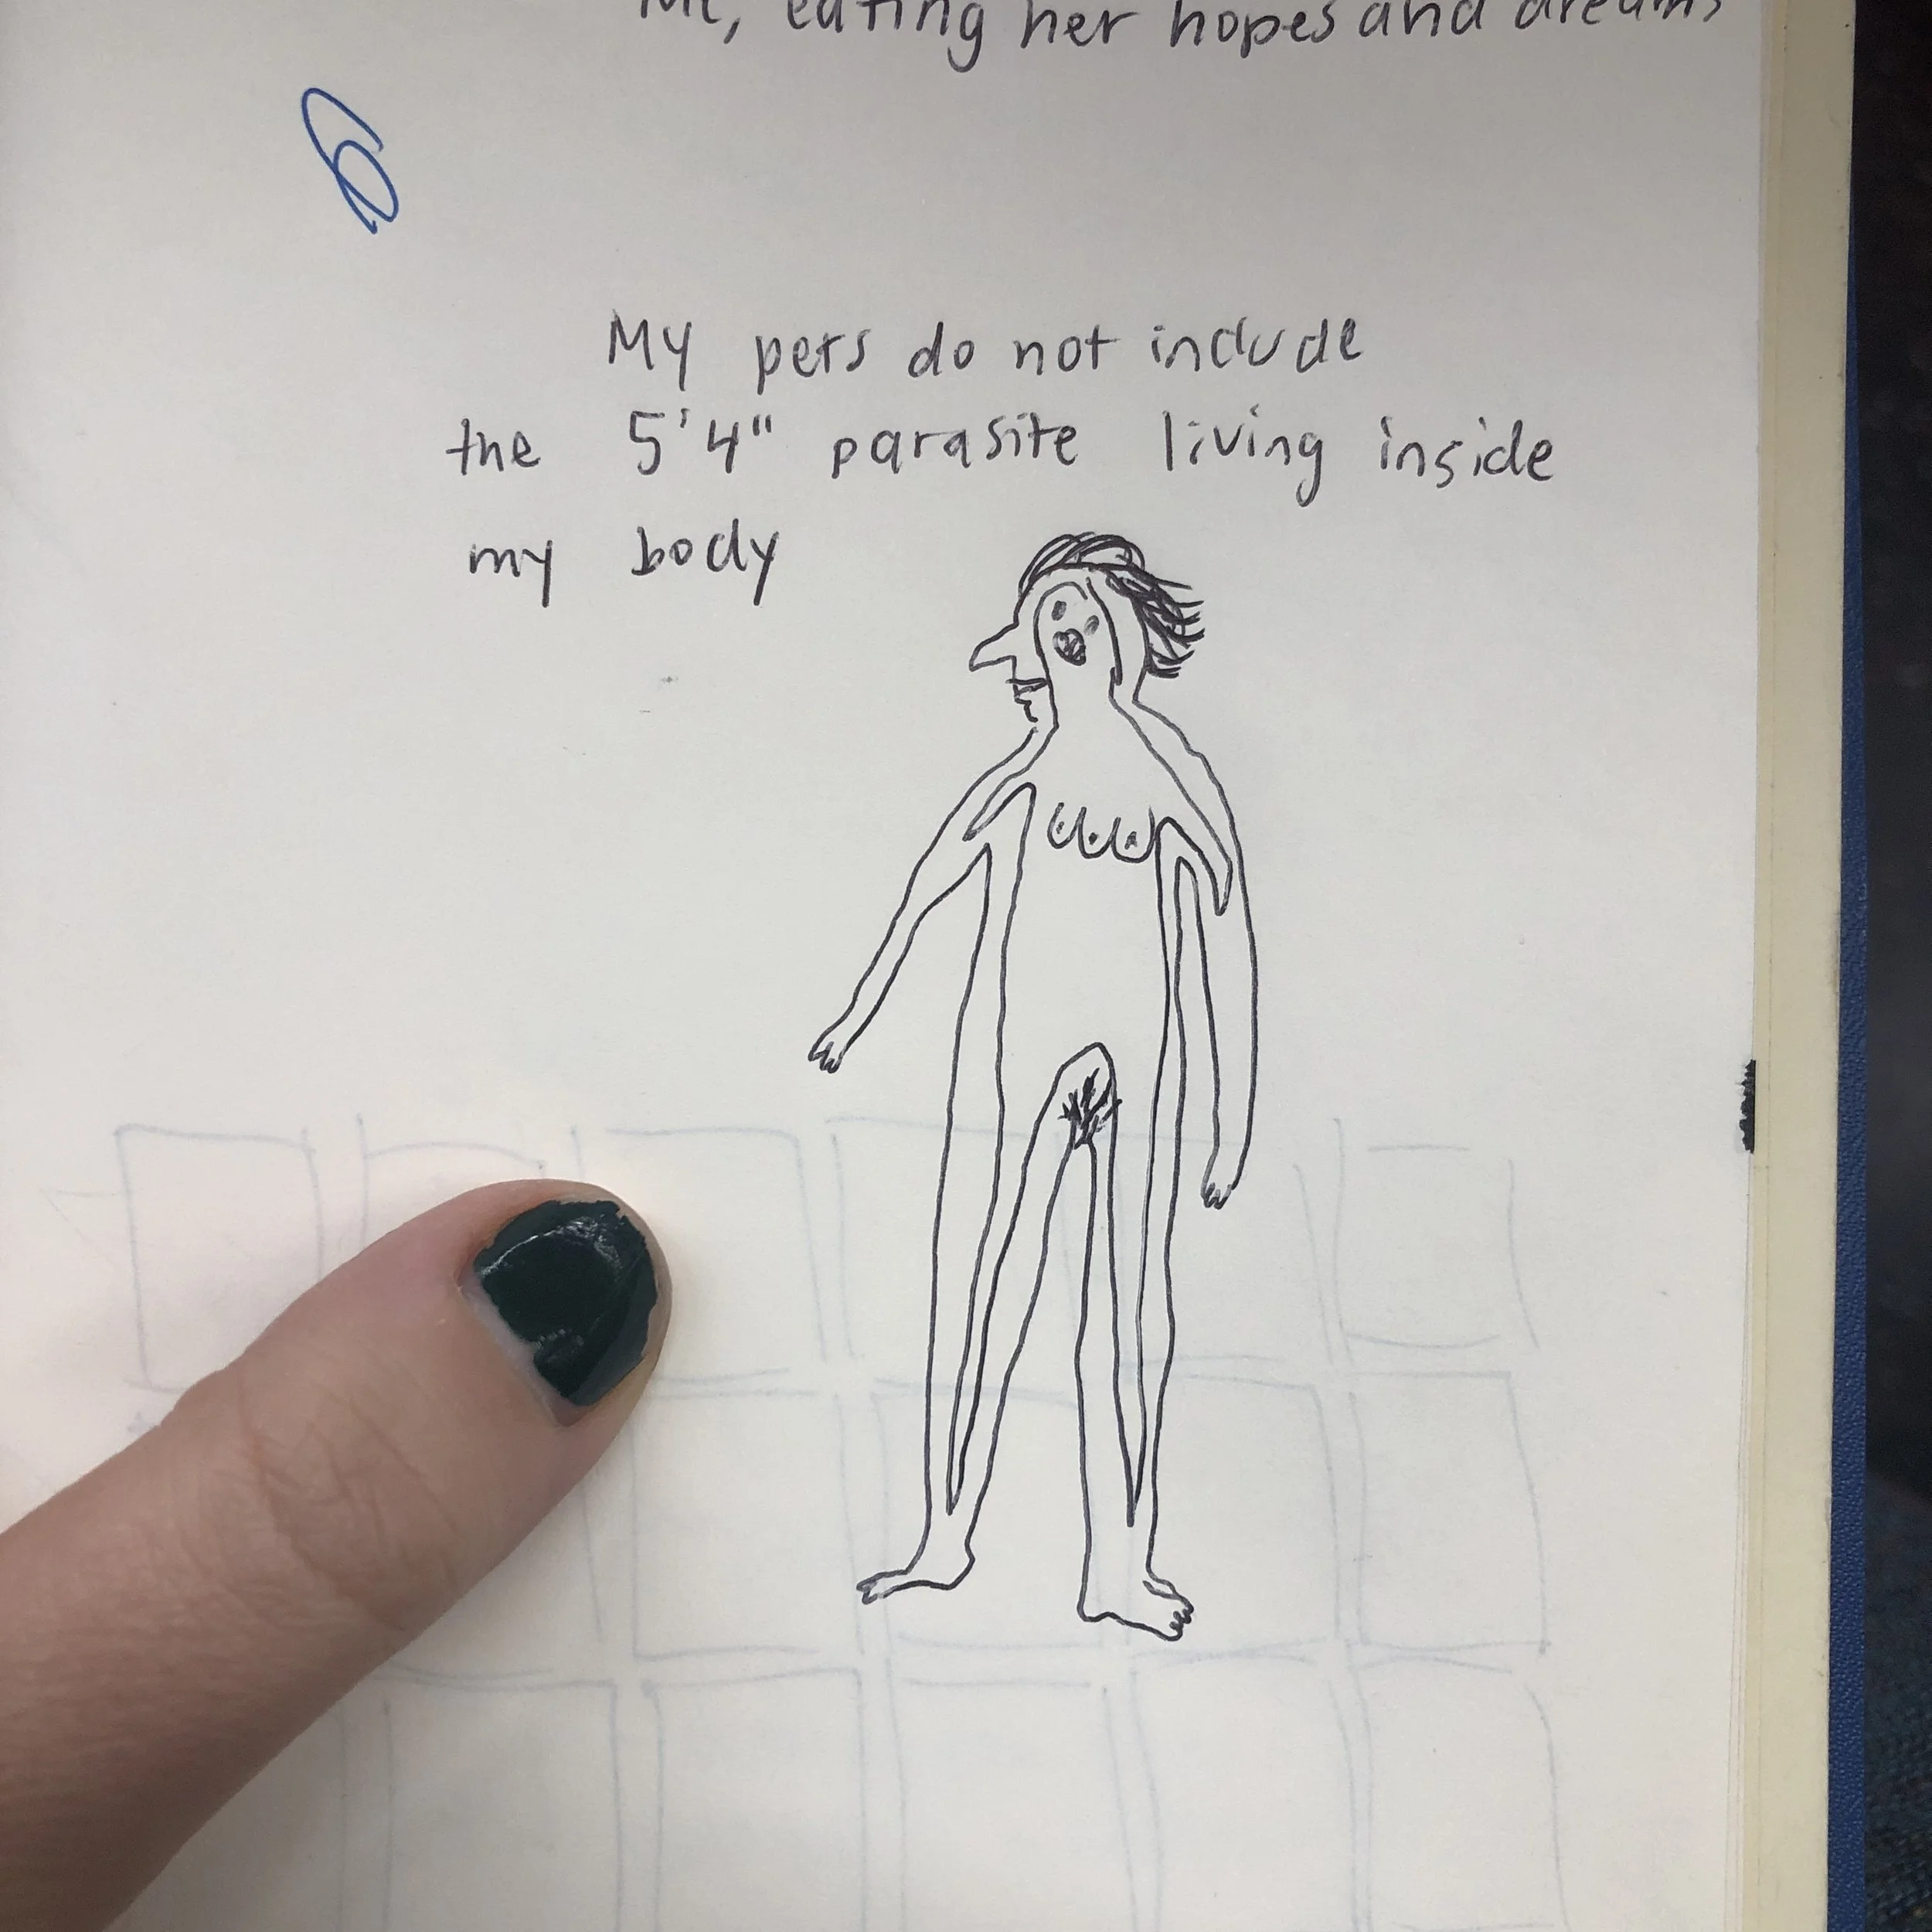 Me, eating her hopes and dreams
My pets do not include
the 5'4" parasite living inside
my body